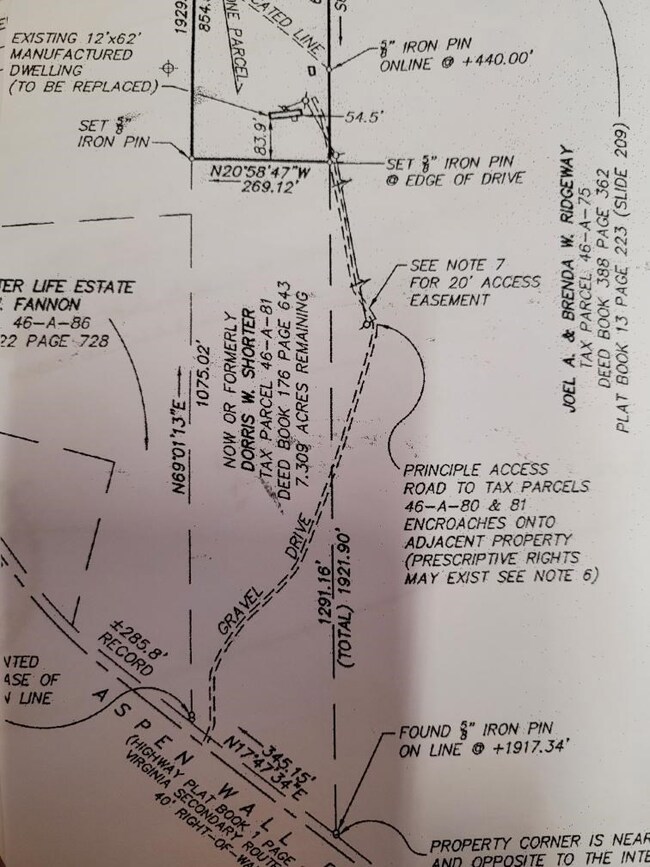 EXISTING 12'x62'
MANUFACTURED
DWELLING
(TO BE REPLACED)
1929.
854.
INE PARCEL
LOCATED LINE
⅝" IRON PIN
ONLINE @ +440.00'
54.5'
83.9'
SET ⅝"
IRON PIN
N20°58'47"W
269.12'
SET ⅝" IRON PIN
@ EDGE OF DRIVE
JOEL A. & BRENDA W. RIDGEWAY
TAX PARCEL 46-A-75
DEED BOOK 388 PAGE 362
PLAT BOOK 13 PAGE 223 (SLIDE 209)
SEE NOTE 7
FOR 20' ACCESS
EASEMENT
TER LIFE ESTATE
. FANNON
46-A-86
22 PAGE 728
N69°01'13"E
1075.02'
NOW OR FORMERLY
DORRIS W. SHORTER
TAX PARCEL 46-A-81
DEED BOOK 176 PAGE 643
7.309 ACRES REMAINING
PRINCIPLE ACCESS
ROAD TO TAX PARCELS
46-A-80 & 81
ENCROACHES ONTO
ADJACENT PROPERTY
(PRESCRIPTIVE RIGHTS
MAY EXIST SEE NOTE 6)
GRAVEL DRIVE
1291.16'
(TOTAL) 1921.90'
±285.8'
RECORD
NTED
ASE OF
N LINE
345.15'
N17°47'34"E
ASPEN WALL
(HIGHWAY PLAT BOOK 1 PAGE
VIRGINIA SECONDARY ROUTE
40' RIGHT-OF-WA
FOUND ⅝" IRON PIN
ON LINE @ +1917.34'
PROPERTY CORNER IS NEAR
AND OPPOSITE TO THE INTE